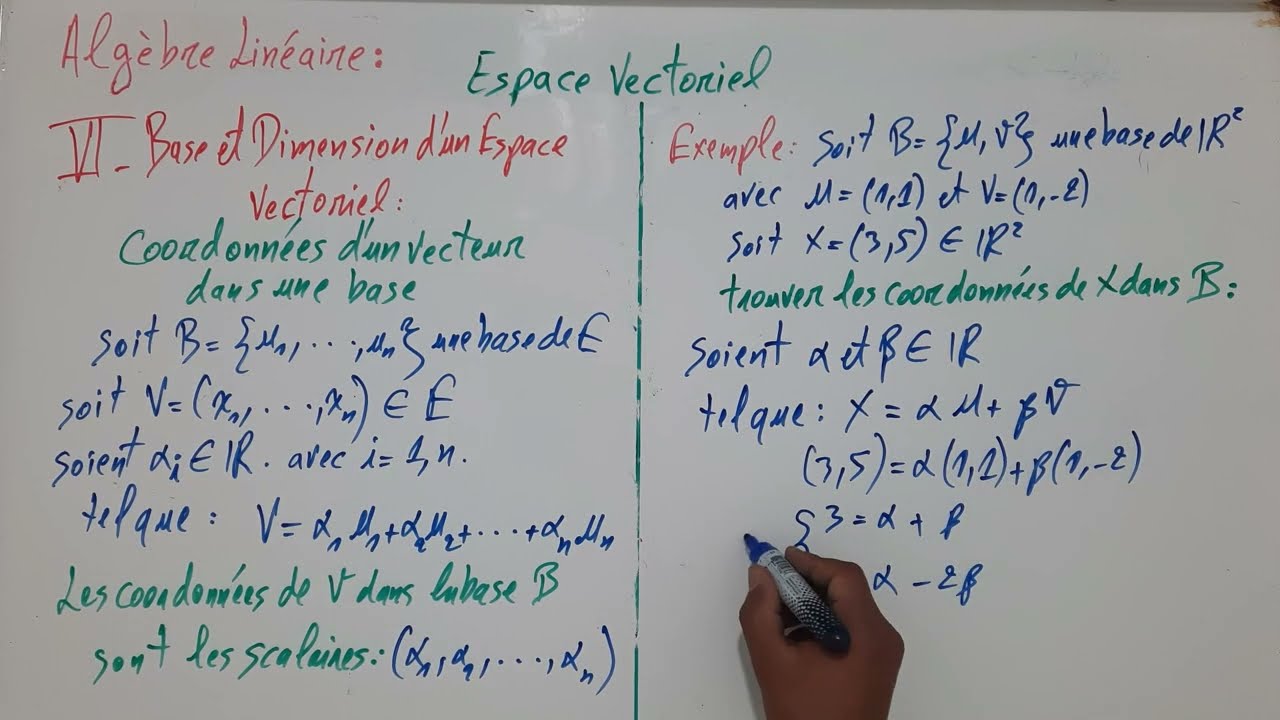 Algèbre Linéaire:
Espace Vectoriel
VI - Base et Dimension d'un Espace
Vectoriel:
Coordonnées d'un vecteur
dans une base
soit B = {u₁, ..., uₙ} une base de E
soit V = (x₁, ..., xₙ) ∈ E
soient αᵢ ∈ IR. avec i = 1, n.
tel que : V = α₁u₁ + α₂u₂ + ... + αₙuₙ
Les coordonnées de V dans la base B
sont les scalaires: (α₁, α₂, ..., αₙ)
Exemple: soit B = {u, v} une base de IR²
avec u = (1,1) et v = (1,-2)
soit X = (3,5) ∈ IR²
trouver les coordonnées de X dans B:
soient α et β ∈ IR
tel que : X = αu + βv
(3,5) = α(1,1) + β(1,-2)
{ 3 = α + β
α - 2β